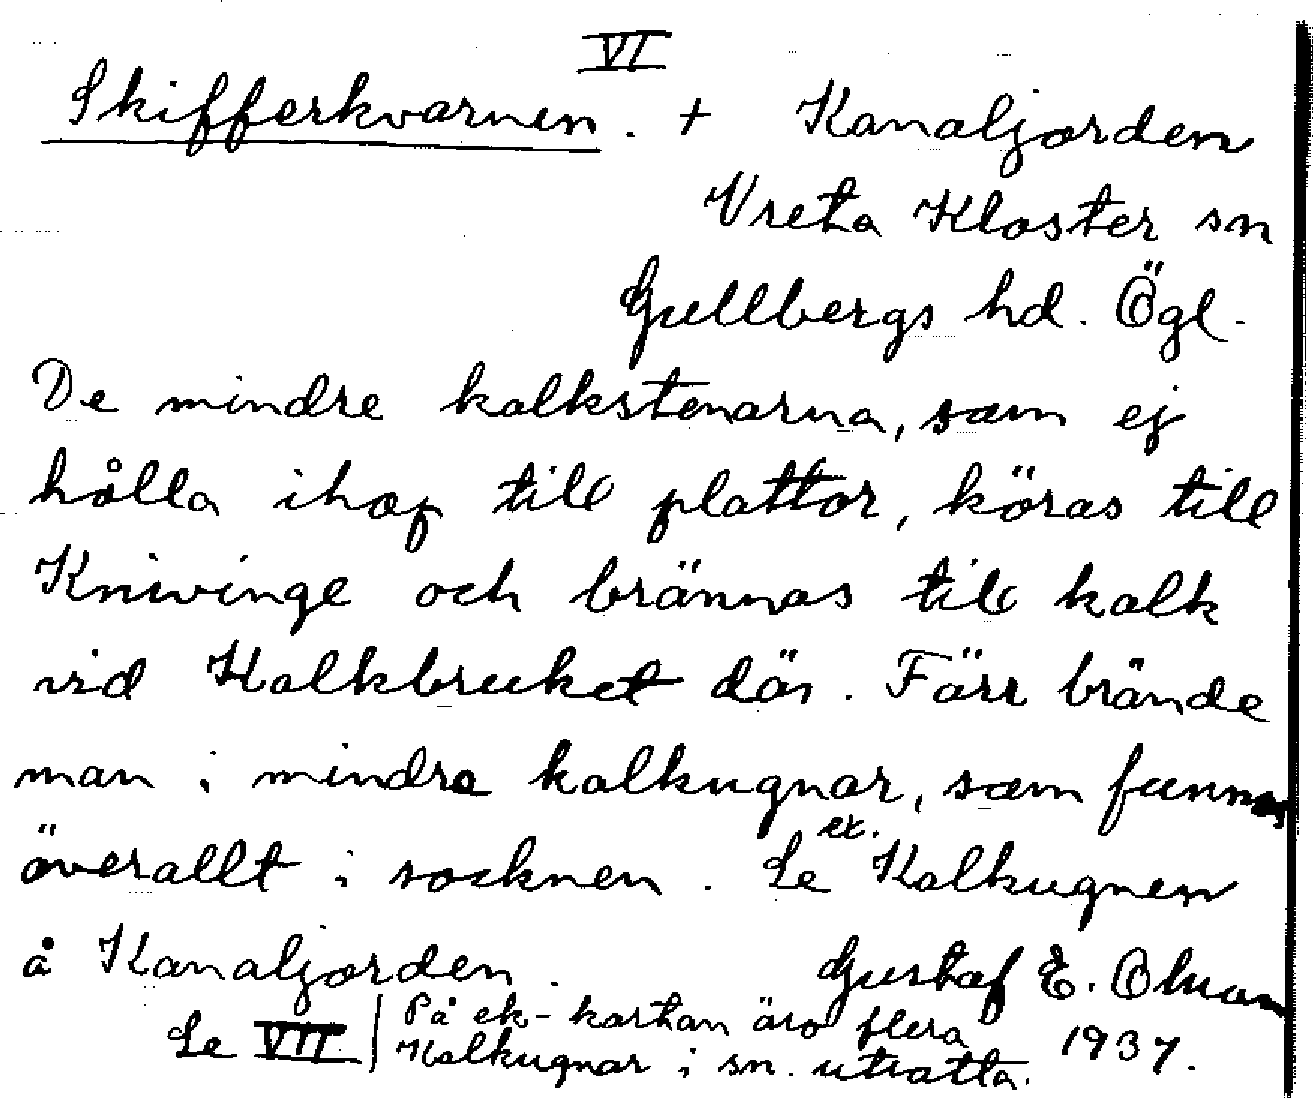 VI
Skifferkvarnen. + Kanaljorden
Vreta Kloster sn
Gullbergs hd. Ögl.
De mindre kalkstenarna, som ej
hålla ihop till plattor, köras till
Knivinge och brännas till kalk
vid Kalkbruket där. Förr brände
man i mindre kalkugnar, som funnos
överallt i socknen. Se ex. Kalkugnen
å Kanaljorden. Gustaf E. Olson
Se VII På ek-kartan äro flera 1937.
Kalkugnar i sn. utsatta.